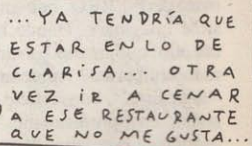 ... YA TENDRÍA QUE
ESTAR EN LO DE
CLARISA... OTRA
VEZ IR A CENAR
A ESE RESTAURANTE
QUE NO ME GUSTA...